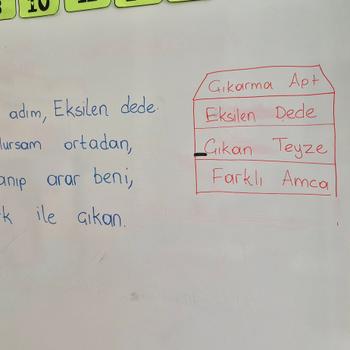 10
adım, Eksilen dede
lursam ortadan,
anıp arar beni,
k ile çıkan.
Çıkarma Apt
Eksilen Dede
Çıkan Teyze
Farklı Amca